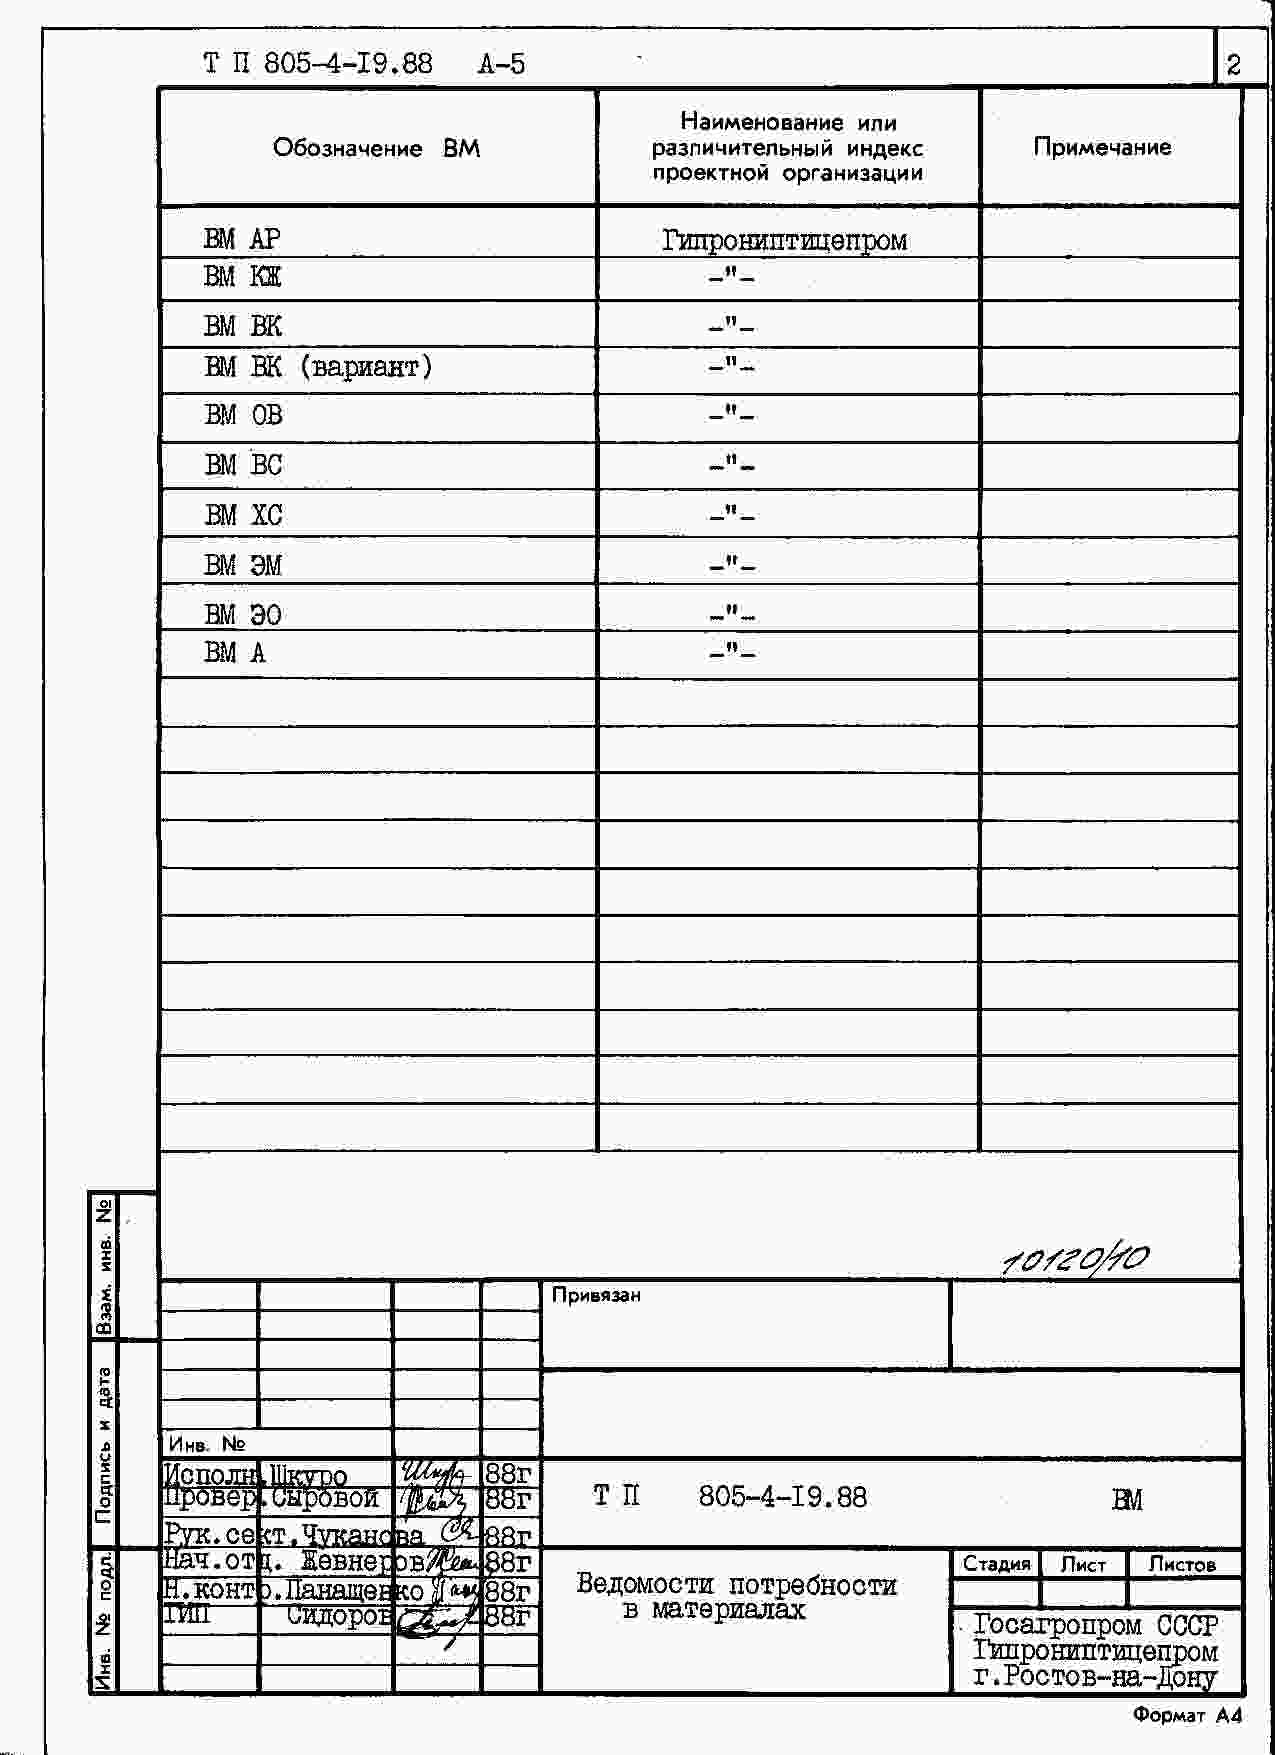 Т П 805-4-I9.88 А-5
2
Обозначение ВМ
Наименование или
различительный индекс
проектной организации
Примечание
ВМ АР Гипрониптицепром
ВМ КЖ -"-
ВМ ВК -"-
ВМ ВК (вариант) -"-
ВМ ОВ -"-
ВМ ВС -"-
ВМ ХС -"-
ВМ ЭМ -"-
ВМ ЭО -"-
ВМ А -"-
10120/10
Взам. инв. №
Подпись и дата
Инв. № подл.
Привязан
Инв. №
Исполн.Шкуро 88г
Провер.Сыровой 88г
Рук.сект.Чуканова 88г
Нач.отд. Жевнеров 88г
Н.контр.Панащенко 88г
ГИП Сидоров 88г
Т П 805-4-I9.88 ВМ
Ведомости потребности
в материалах
Стадия Лист Листов
Госагропром СССР
Гипрониптицепром
г.Ростов-на-Дону
Формат А4